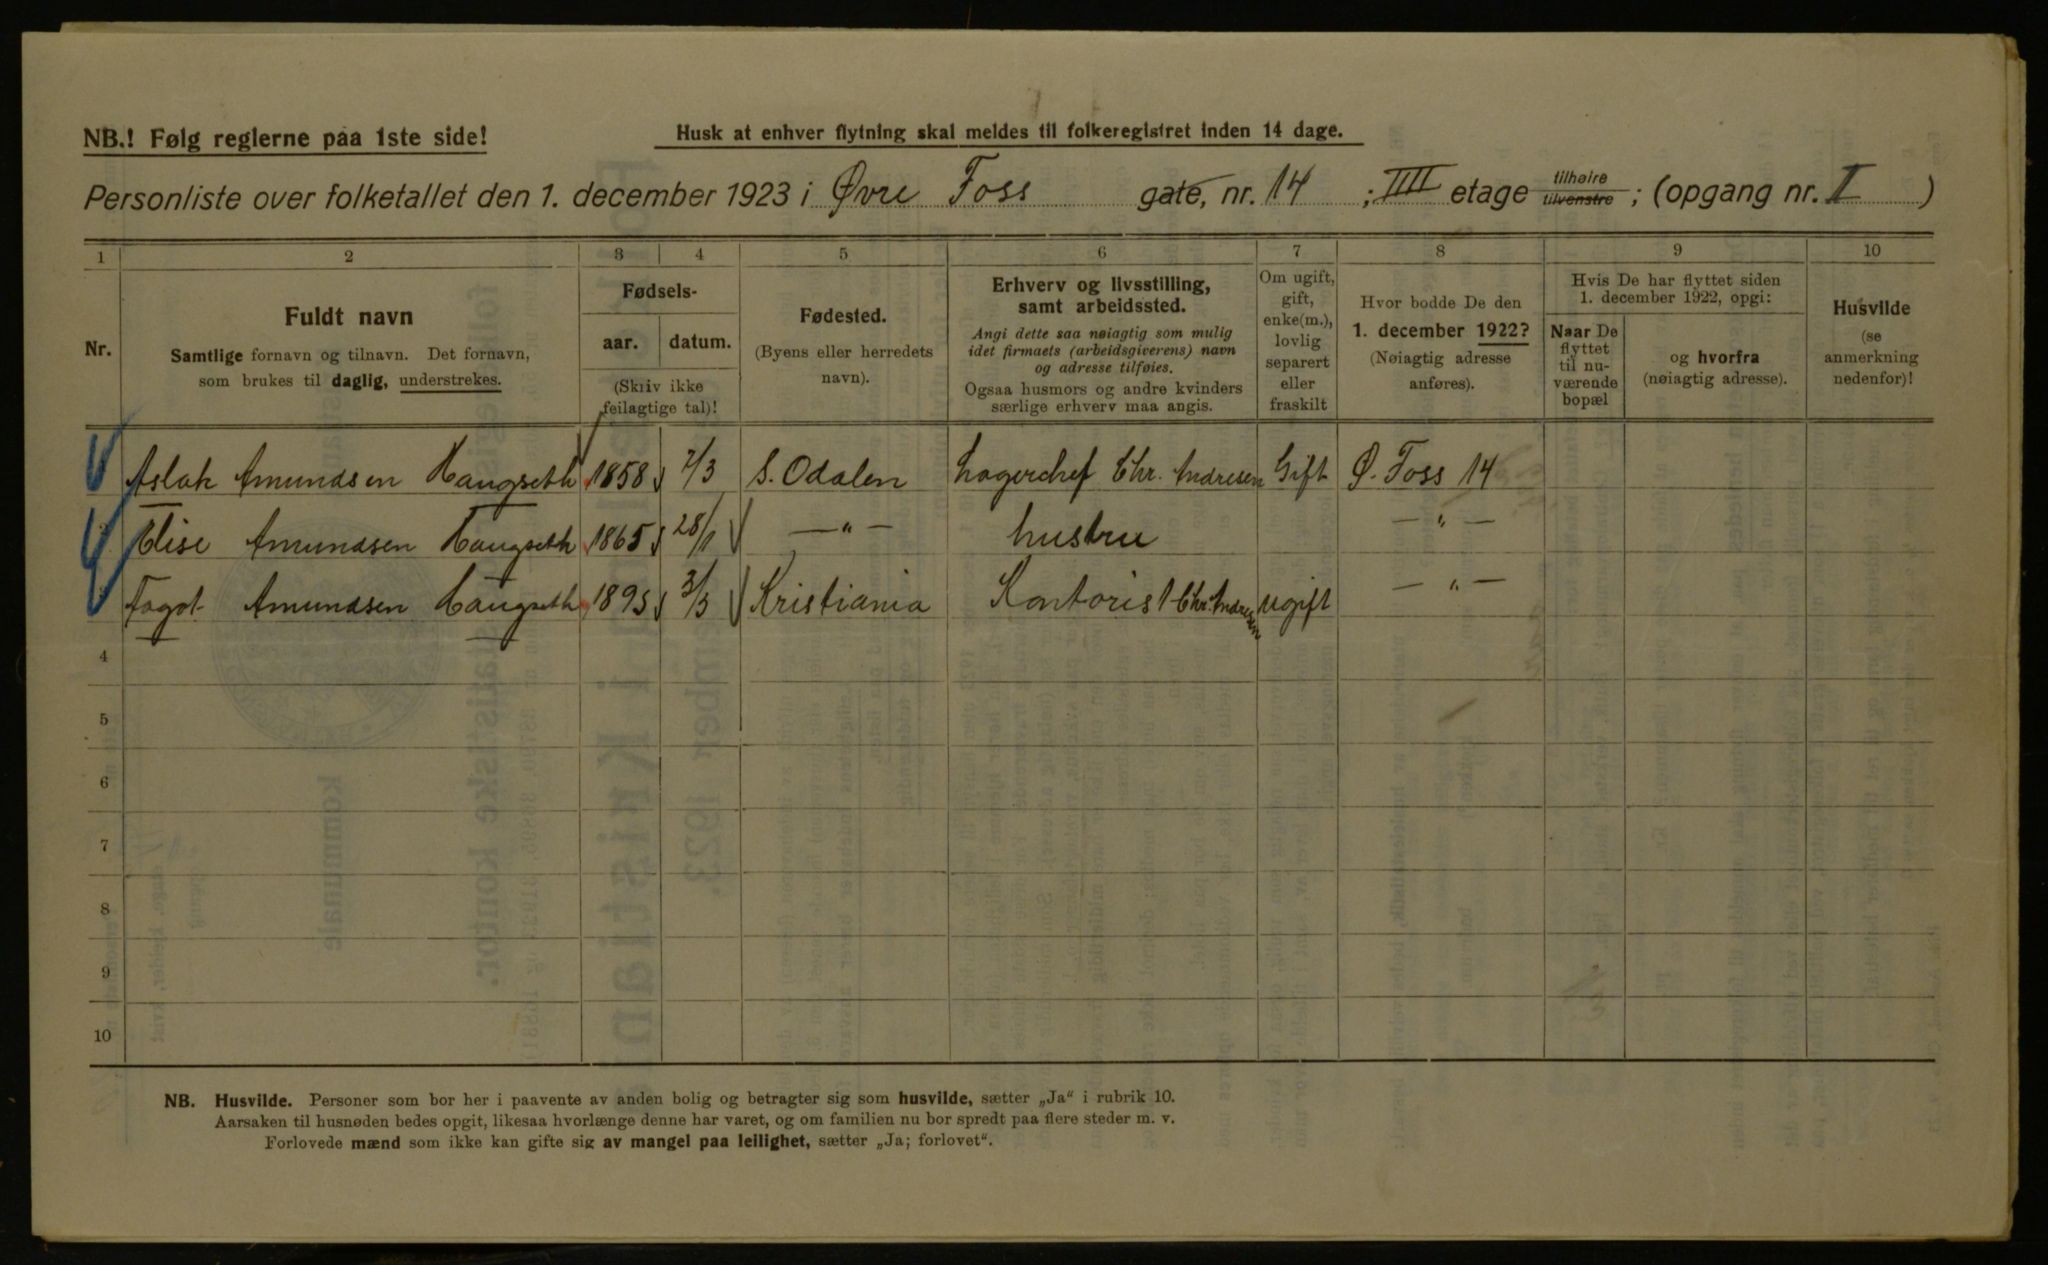 NB.! Følg reglerne paa 1ste side!
Husk at enhver flytning skal meldes til folkeregistret inden 14 dage.
Personliste over folketallet den 1. december 1923 i Øvre Foss gate, nr. 14 ; IIII etage tilhøire tilvenstre ; (opgang nr. I )
1 2 3 4 5 6 7 8 9 10
Nr.
Fuldt navn
Samtlige fornavn og tilnavn. Det fornavn,
som brukes til daglig, understrekes.
Fødsels-
aar. datum.
(Skriv ikke
feilagtige tal)!
Fødested.
(Byens eller herredets
navn).
Erhverv og livsstilling,
samt arbeidssted.
Angi dette saa nøiagtig som mulig
idet firmaets (arbeidsgiverens) navn
og adresse tilføies.
Ogsaa husmors og andre kvinders
særlige erhverv maa angis.
Om ugift,
gift,
enke(m.),
lovlig
separert
eller
fraskilt
Hvor bodde De den
1. december 1922?
(Nøiagtig adresse
anføres).
Hvis De har flyttet siden
1. december 1922, opgi:
Naar De
flyttet
til nu-
værende
bopæl
og hvorfra
(nøiagtig adresse).
Husvilde
(se
anmerkning
nedenfor)!
Aslak Amundsen Haugseth 1858 7/3 S. Odalen Lagerchef Chr. Andresen Gift Ø. Foss 14
Elise Amundsen Haugseth 1865 28/1 —"— hustru —"—
Amundsen Haugseth 1895 Kristiania Kontorist Chr. Andresen Ugift —"—
4
5
6
7
8
9
10
NB. Husvilde. Personer som bor her i paavente av anden bolig og betragter sig som husvilde, sætter „Ja“ i rubrik 10.
Aarsaken til husnøden bedes opgit, likesaa hvorlænge denne har varet, og om familien nu bor spredt paa flere steder m. v.
Forlovede mænd som ikke kan gifte sig av mangel paa leilighet, sætter „Ja; forlovet“.